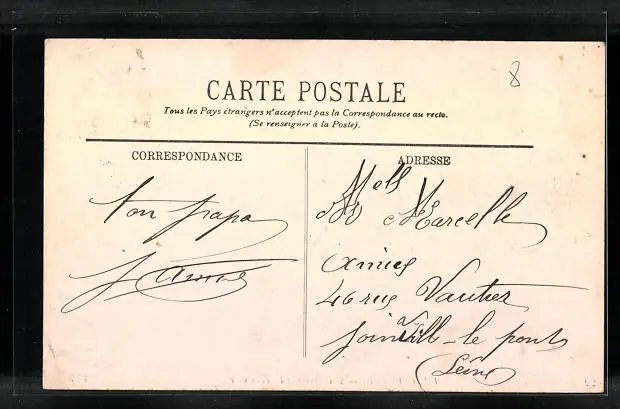 8
CARTE POSTALE
Tous les Pays étrangers n'acceptent pas la Correspondance au recto.
(Se renseigner à la Poste).
CORRESPONDANCE
ADRESSE
ton papa
Mell
Marcelle
46 rue Vautier
à
Joinvill-le pont
(Seine